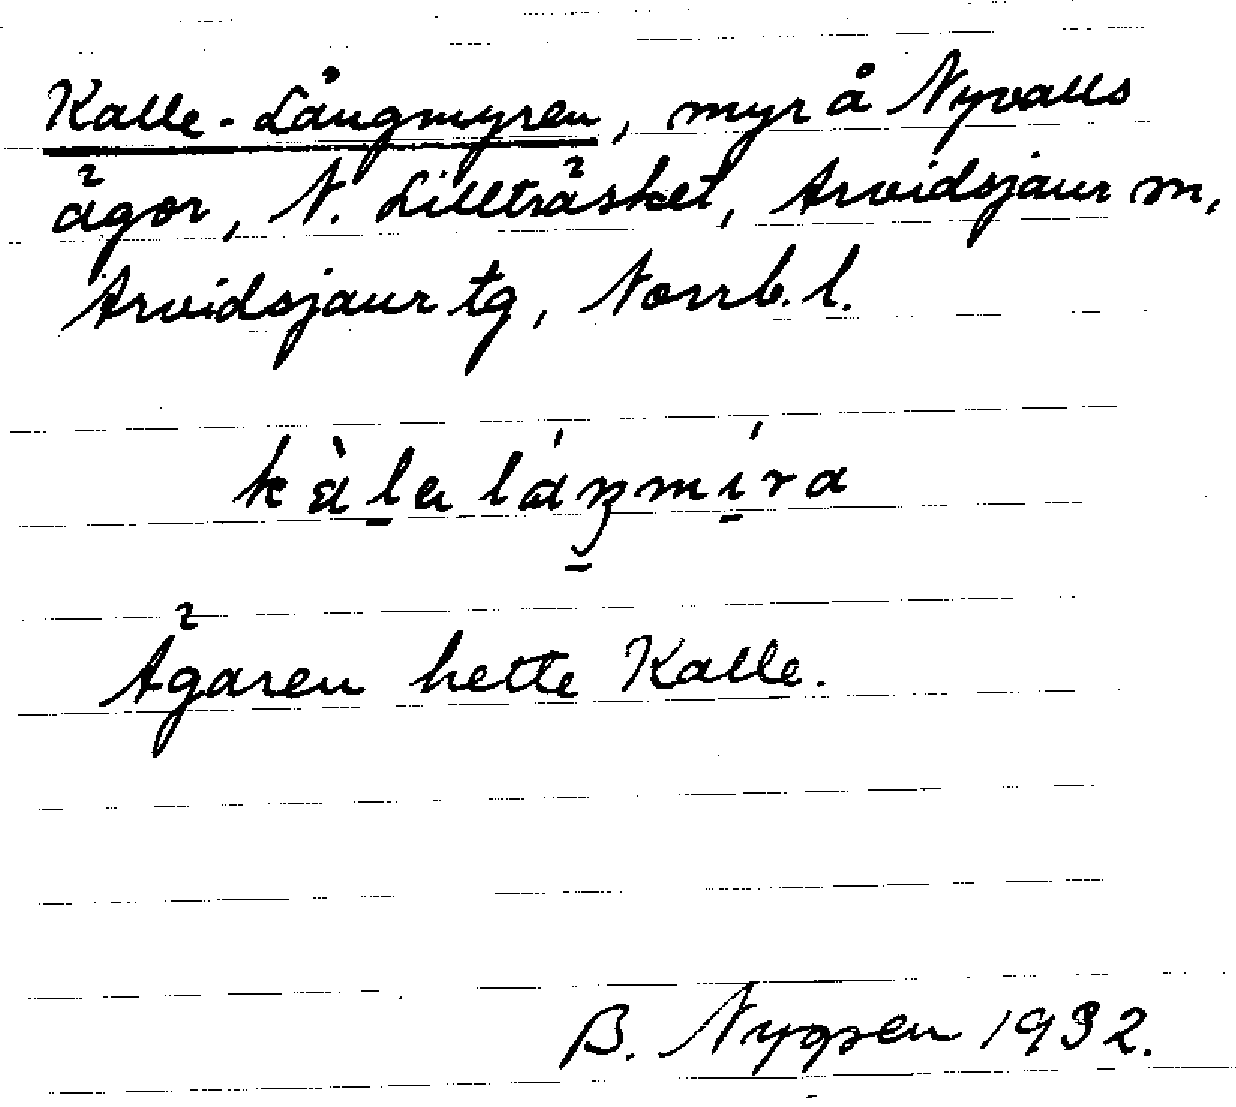 Kalle-Långmyren, myr å Nyvalls
ägor, N. Lillträsket, Arvidsjaur sn,
Arvidsjaur tg, Norrb. l.
Ägaren hette Kalle.
B. Nygren 1932.